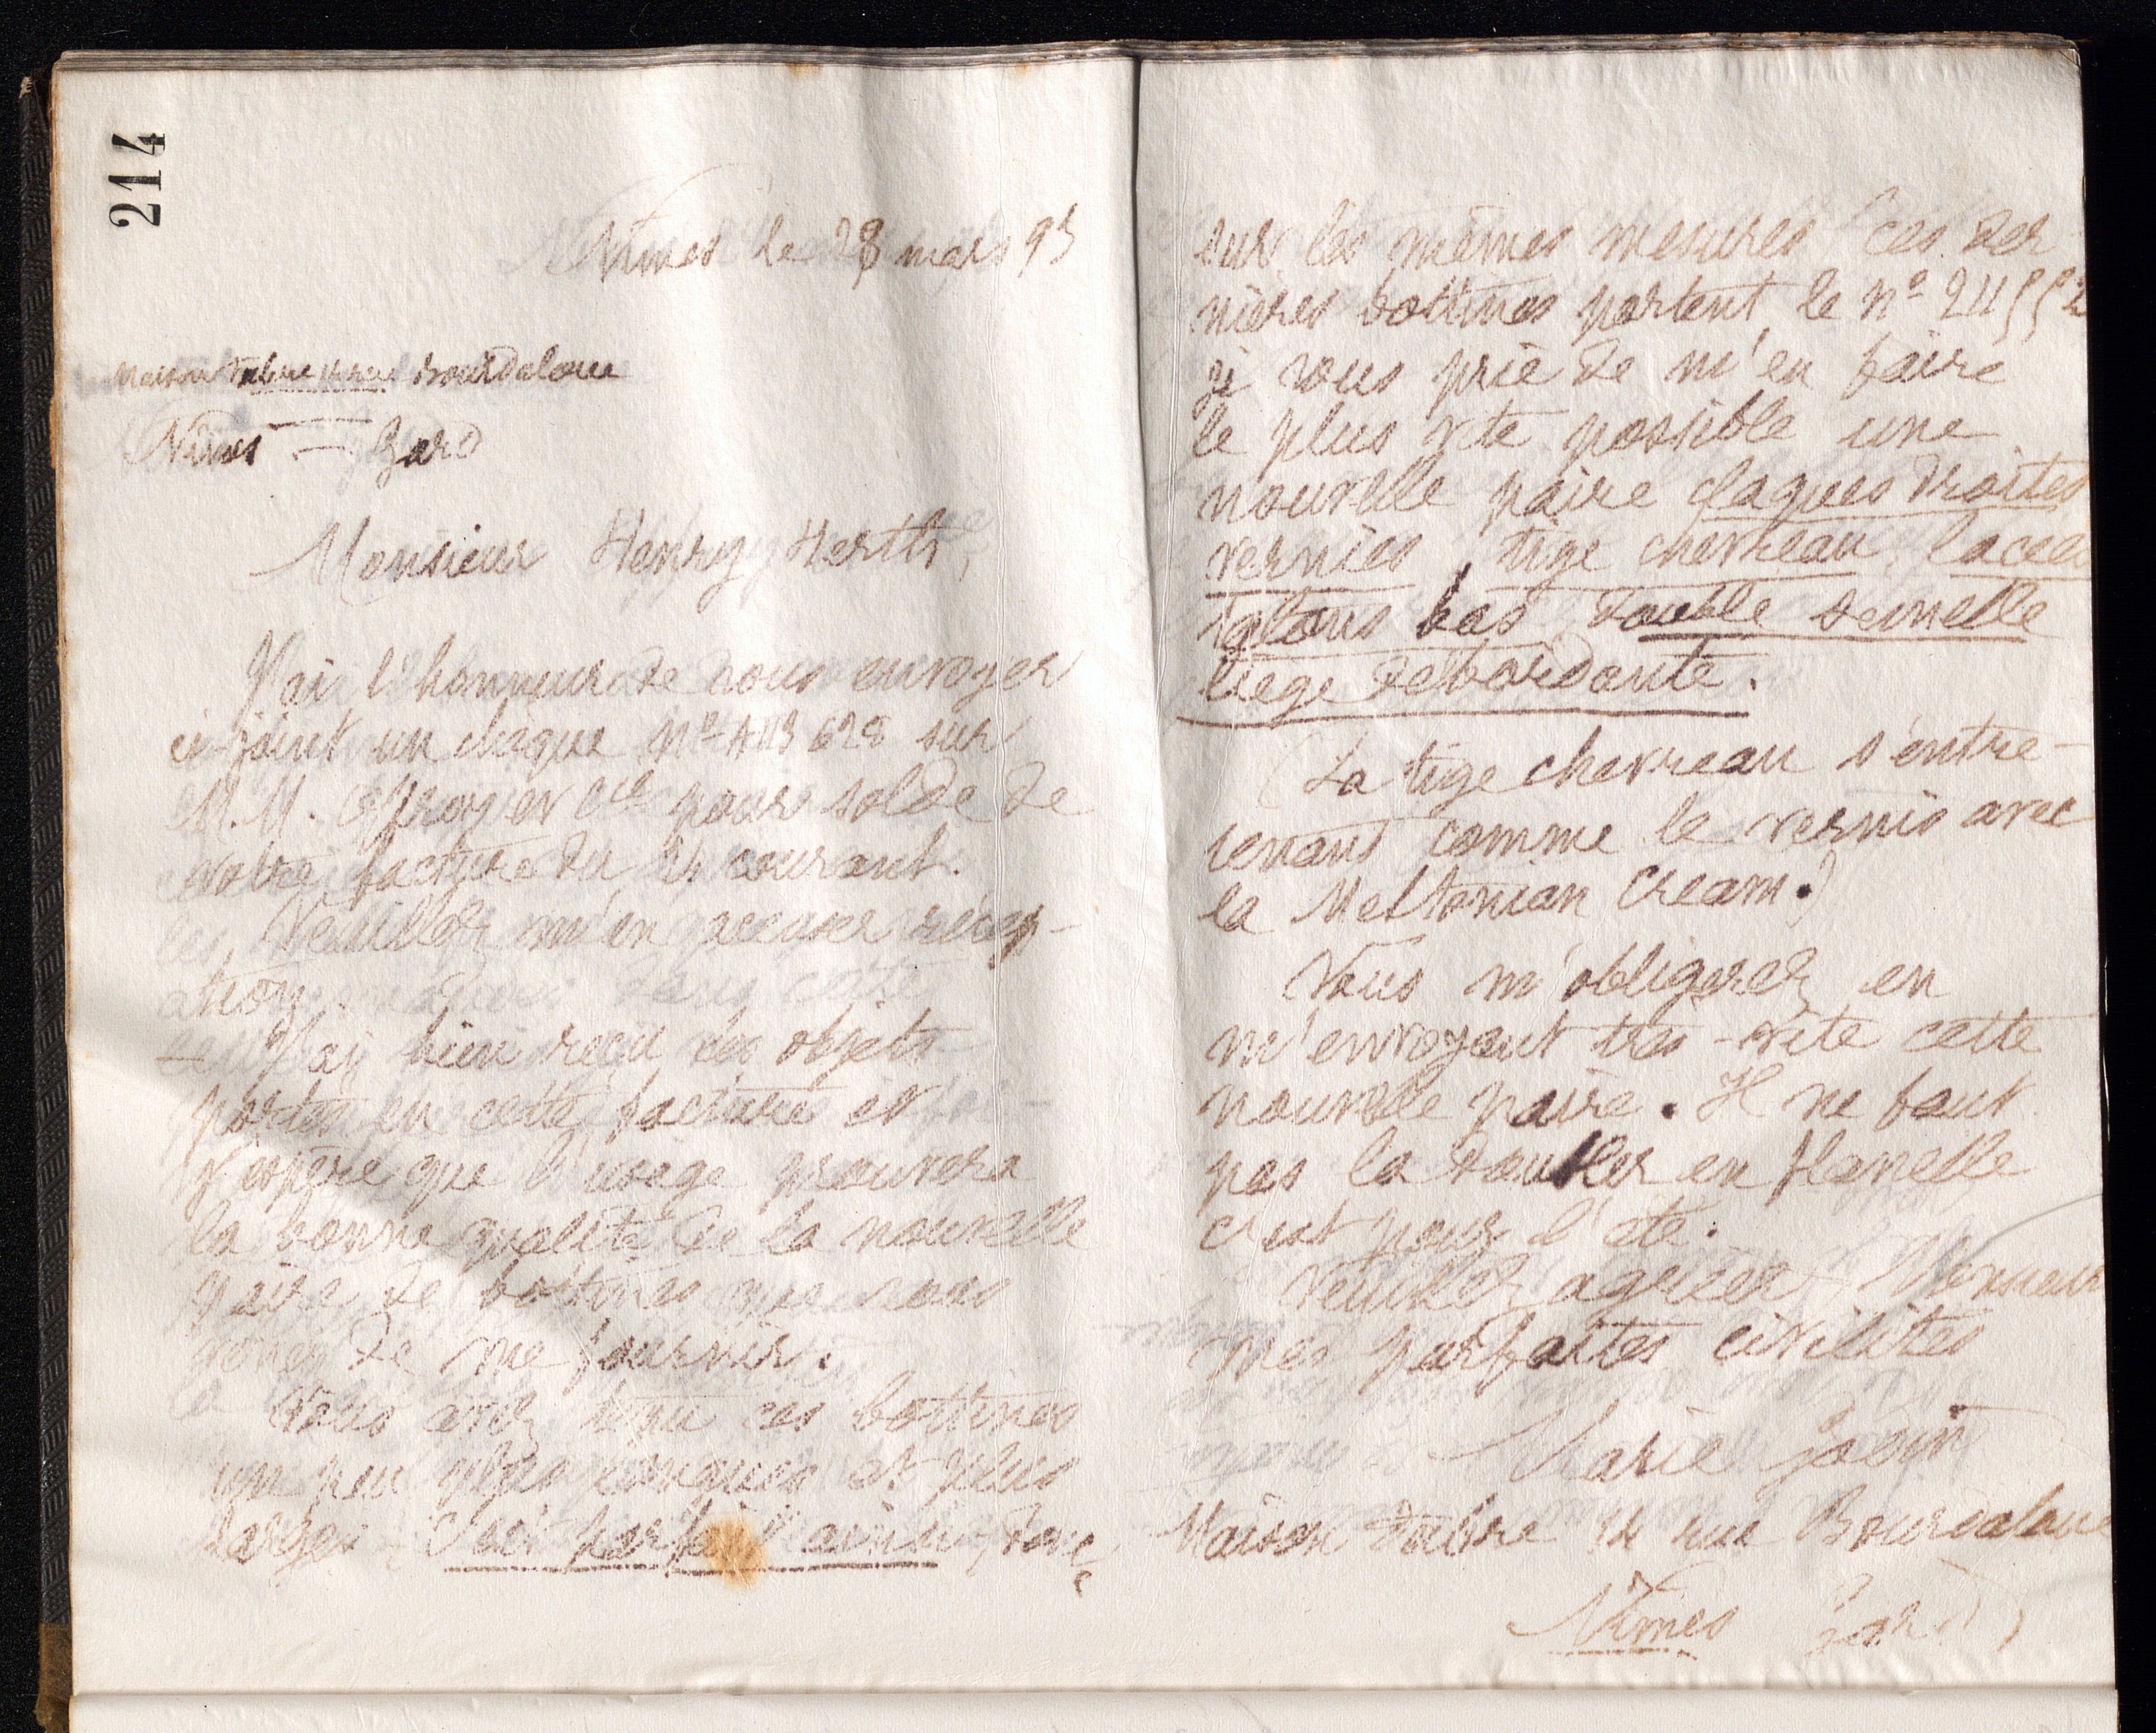 214
Nîmes le 28 mars 95
Maison Fabre 14 rue Bourdaloue
Nîmes — Gard
Monsieur Henry Herth,
J'ai l'honneur de vous envoyer
ci-joint un chèque nº 413 628 sur
M.M. et Cie pour solde de
votre facture du 24 courant.
Veuillez m'en accuser récep-
tion.
J'ai bien reçu les objets
portés en cette facture et
j'espère que l'usage prouvera
la bonne qualité de la nouvelle
paire de bottines que vous
venez de me fournir.
Vous avez tenu ces bottines
un peu plus longues et plus
larges - C'est parfait ainsi, donc
sur les mêmes mesures (ces der
nières bottines portent le nº 24552
je vous prie de m'en faire
le plus vite possible une
nouvelle paire claques droites
vernies, tige chevreau, lacées
talons bas, double semelle
liege débordante.
(La tige chevreau s'entre-
tenant comme le vernis avec
la Meltonian Cream.)
Vous m'obligerez en
m'envoyant très-vite cette
nouvelle paire. Il ne faut
pas la doubler en flanelle
c'est pour l'été.
Veuillez agréer, Monsieur
mes parfaites civilités
Marie
Maison Fabre 14 rue Bourdaloue
Nîmes Gard